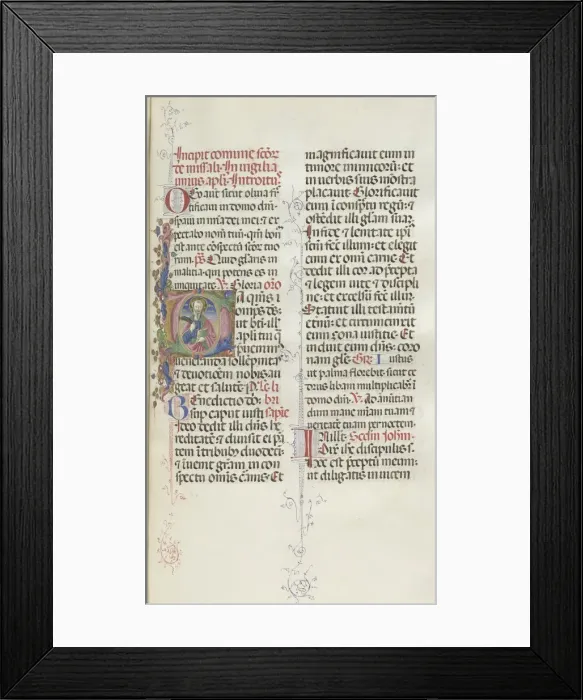 Incipit comune scōr
de missali. In vigilia
unius apli. Introitus.
Ego aut sicut oliva fru
ctificavi in domo dm̄.
spavi in mia dei mei: et ex
pectabo nom̄ tuū. qm̄ bonū
est ante cōspectū scōr tuo
rum. ps̄. Quid gloris in
malicia. qui potens es in
iniquitate. V. Gloria. oro
a quis o
omps ds:
ut bti. ill.
apli tui
venturam
veneranda sollepnitas
et devotiōem nobis au
geat et salutē. P. le li
Benedictio dn̄i: bri
sup caput iusti sapie
Ideo dedit illi dn̄s he
reditatē et divisit ei pa
tem ī tribubꝫ duodeci:
et ivenit gram in con
spectu omis carnis. Et
magnificavit eum in
timore inimicorū: et
in verbis suis mōstra
placavit. Glorificavit
eum ī conspectu regū: et
ostēdit illi glam suam.
In fide et lenitate ipi
scm̄ fec illum: et elegit
eum ex om̄i carne. Et
dedit illi cor ad pcepta
et legem vite et discipli
ne: et excelsū fec illū.
Statuit illi testamtū
etnū: et circumcinxit
eum zona iusticie. Et
induit eum dn̄s: coro
nam glie. Gr̄. Iustus
ut palma florebit: sicut ce
drus libani multiplicabit ī
domo dn̄i. V. Ad anūtian
dum mane mīam tuam et
veritatē tuam per noctem.
In illo t. Secūm Iohm̄.
Dix ihc discipulis s.
Hoc est pceptū meum:
ut diligatis invicem